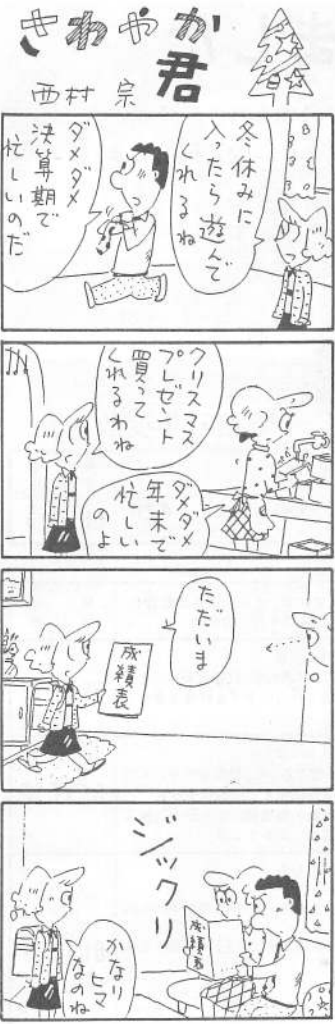 さわやか
君
西村 宗
冬休みに
入ったら遊んで
くれるね
ダメダメ
決算期で
忙しいのだ
クリスマス
プレゼント
買って
くれるわね
ダメダメ
年末で
忙しい
のよ
ただいま
成績表
ジックリ
成績表
かなり
ヒマ
なのね